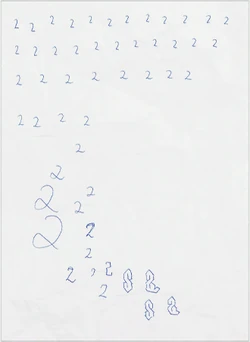 2 2 2 2 2 2 2 2 2 2 2 2
2 2 2 2 2 2 2 2 2 2 2
2 2 2 2 2 2 2 2
2 2 2 2
2
2
2 2
2
2 2
2
2 , 2 2 2
2
2 2